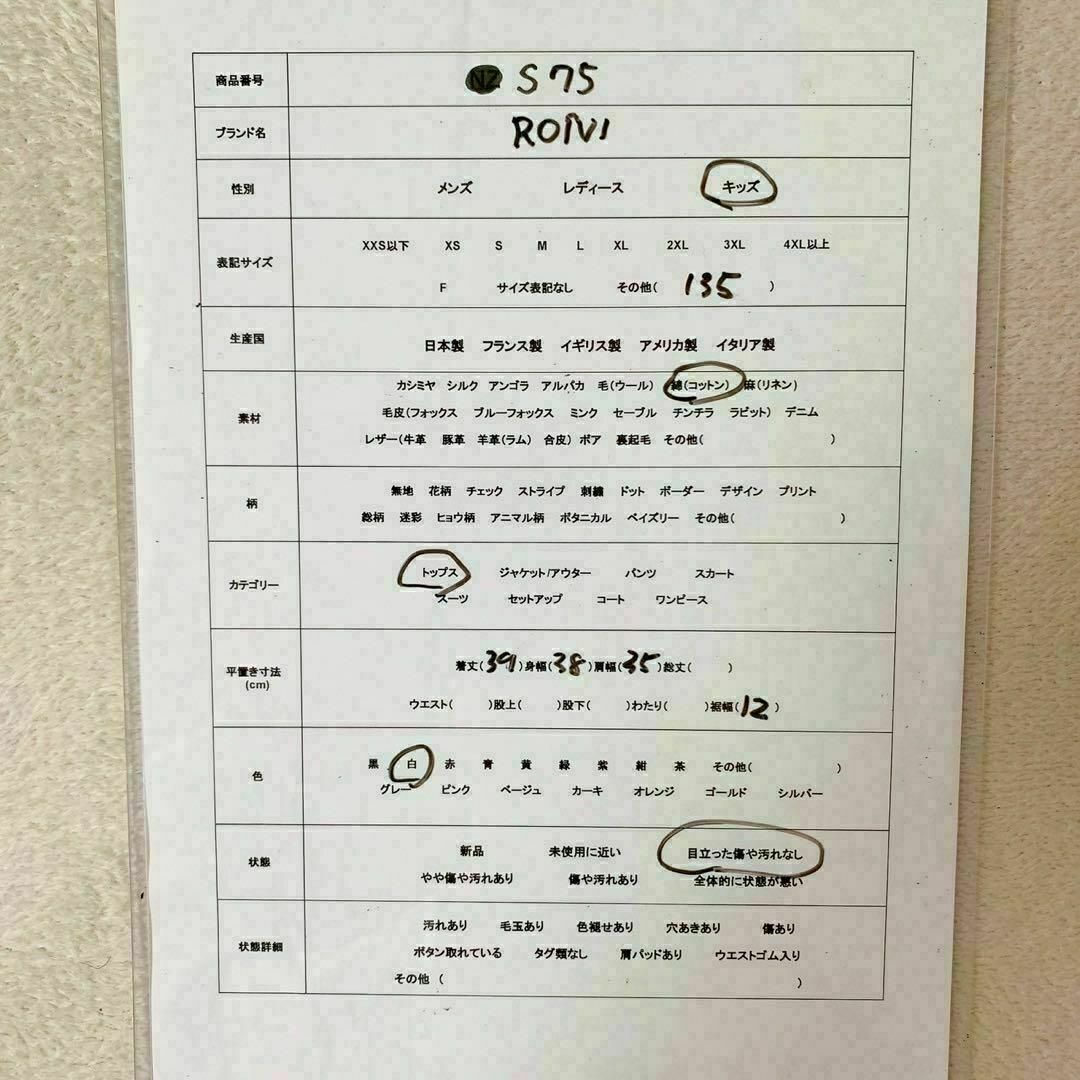 商品番号 NZ S75
ブランド名 ROIVI
性別 メンズ レディース キッズ
表記サイズ
XXS以下 XS S M L XL 2XL 3XL 4XL以上
F サイズ表記なし その他( 135 )
生産国 日本製 フランス製 イギリス製 アメリカ製 イタリア製
素材
カシミヤ シルク アンゴラ アルパカ 毛(ウール) 綿(コットン) 麻(リネン)
毛皮(フォックス ブルーフォックス ミンク セーブル チンチラ ラビット) デニム
レザー(牛革 豚革 羊革(ラム) 合皮) ボア 裏起毛 その他( )
柄
無地 花柄 チェック ストライプ 刺繍 ドット ボーダー デザイン プリント
総柄 迷彩 ヒョウ柄 アニマル柄 ボタニカル ペイズリー その他( )
カテゴリー
トップス ジャケット/アウター パンツ スカート
スーツ セットアップ コート ワンピース
平置き寸法
(cm)
着丈(39)身幅(38)肩幅(35)総丈( )
ウエスト( )股上( )股下( )わたり( )裾幅(12)
色
黒 白 赤 青 黄 緑 紫 紺 茶 その他( )
グレー ピンク ベージュ カーキ オレンジ ゴールド シルバー
状態
新品 未使用に近い 目立った傷や汚れなし
やや傷や汚れあり 傷や汚れあり 全体的に状態が悪い
状態詳細
汚れあり 毛玉あり 色褪せあり 穴あきあり 傷あり
ボタン取れている タグ類なし 肩パッドあり ウエストゴム入り
その他 ( )